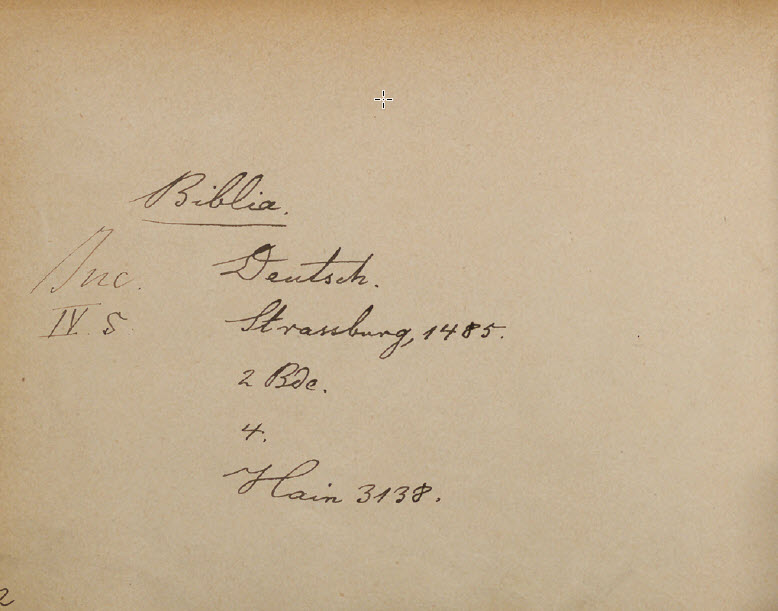 Biblia.
Inc. Deutsch.
IV. 5 Strassburg, 1485.
2 Bde.
4.
Hain 3138.
2